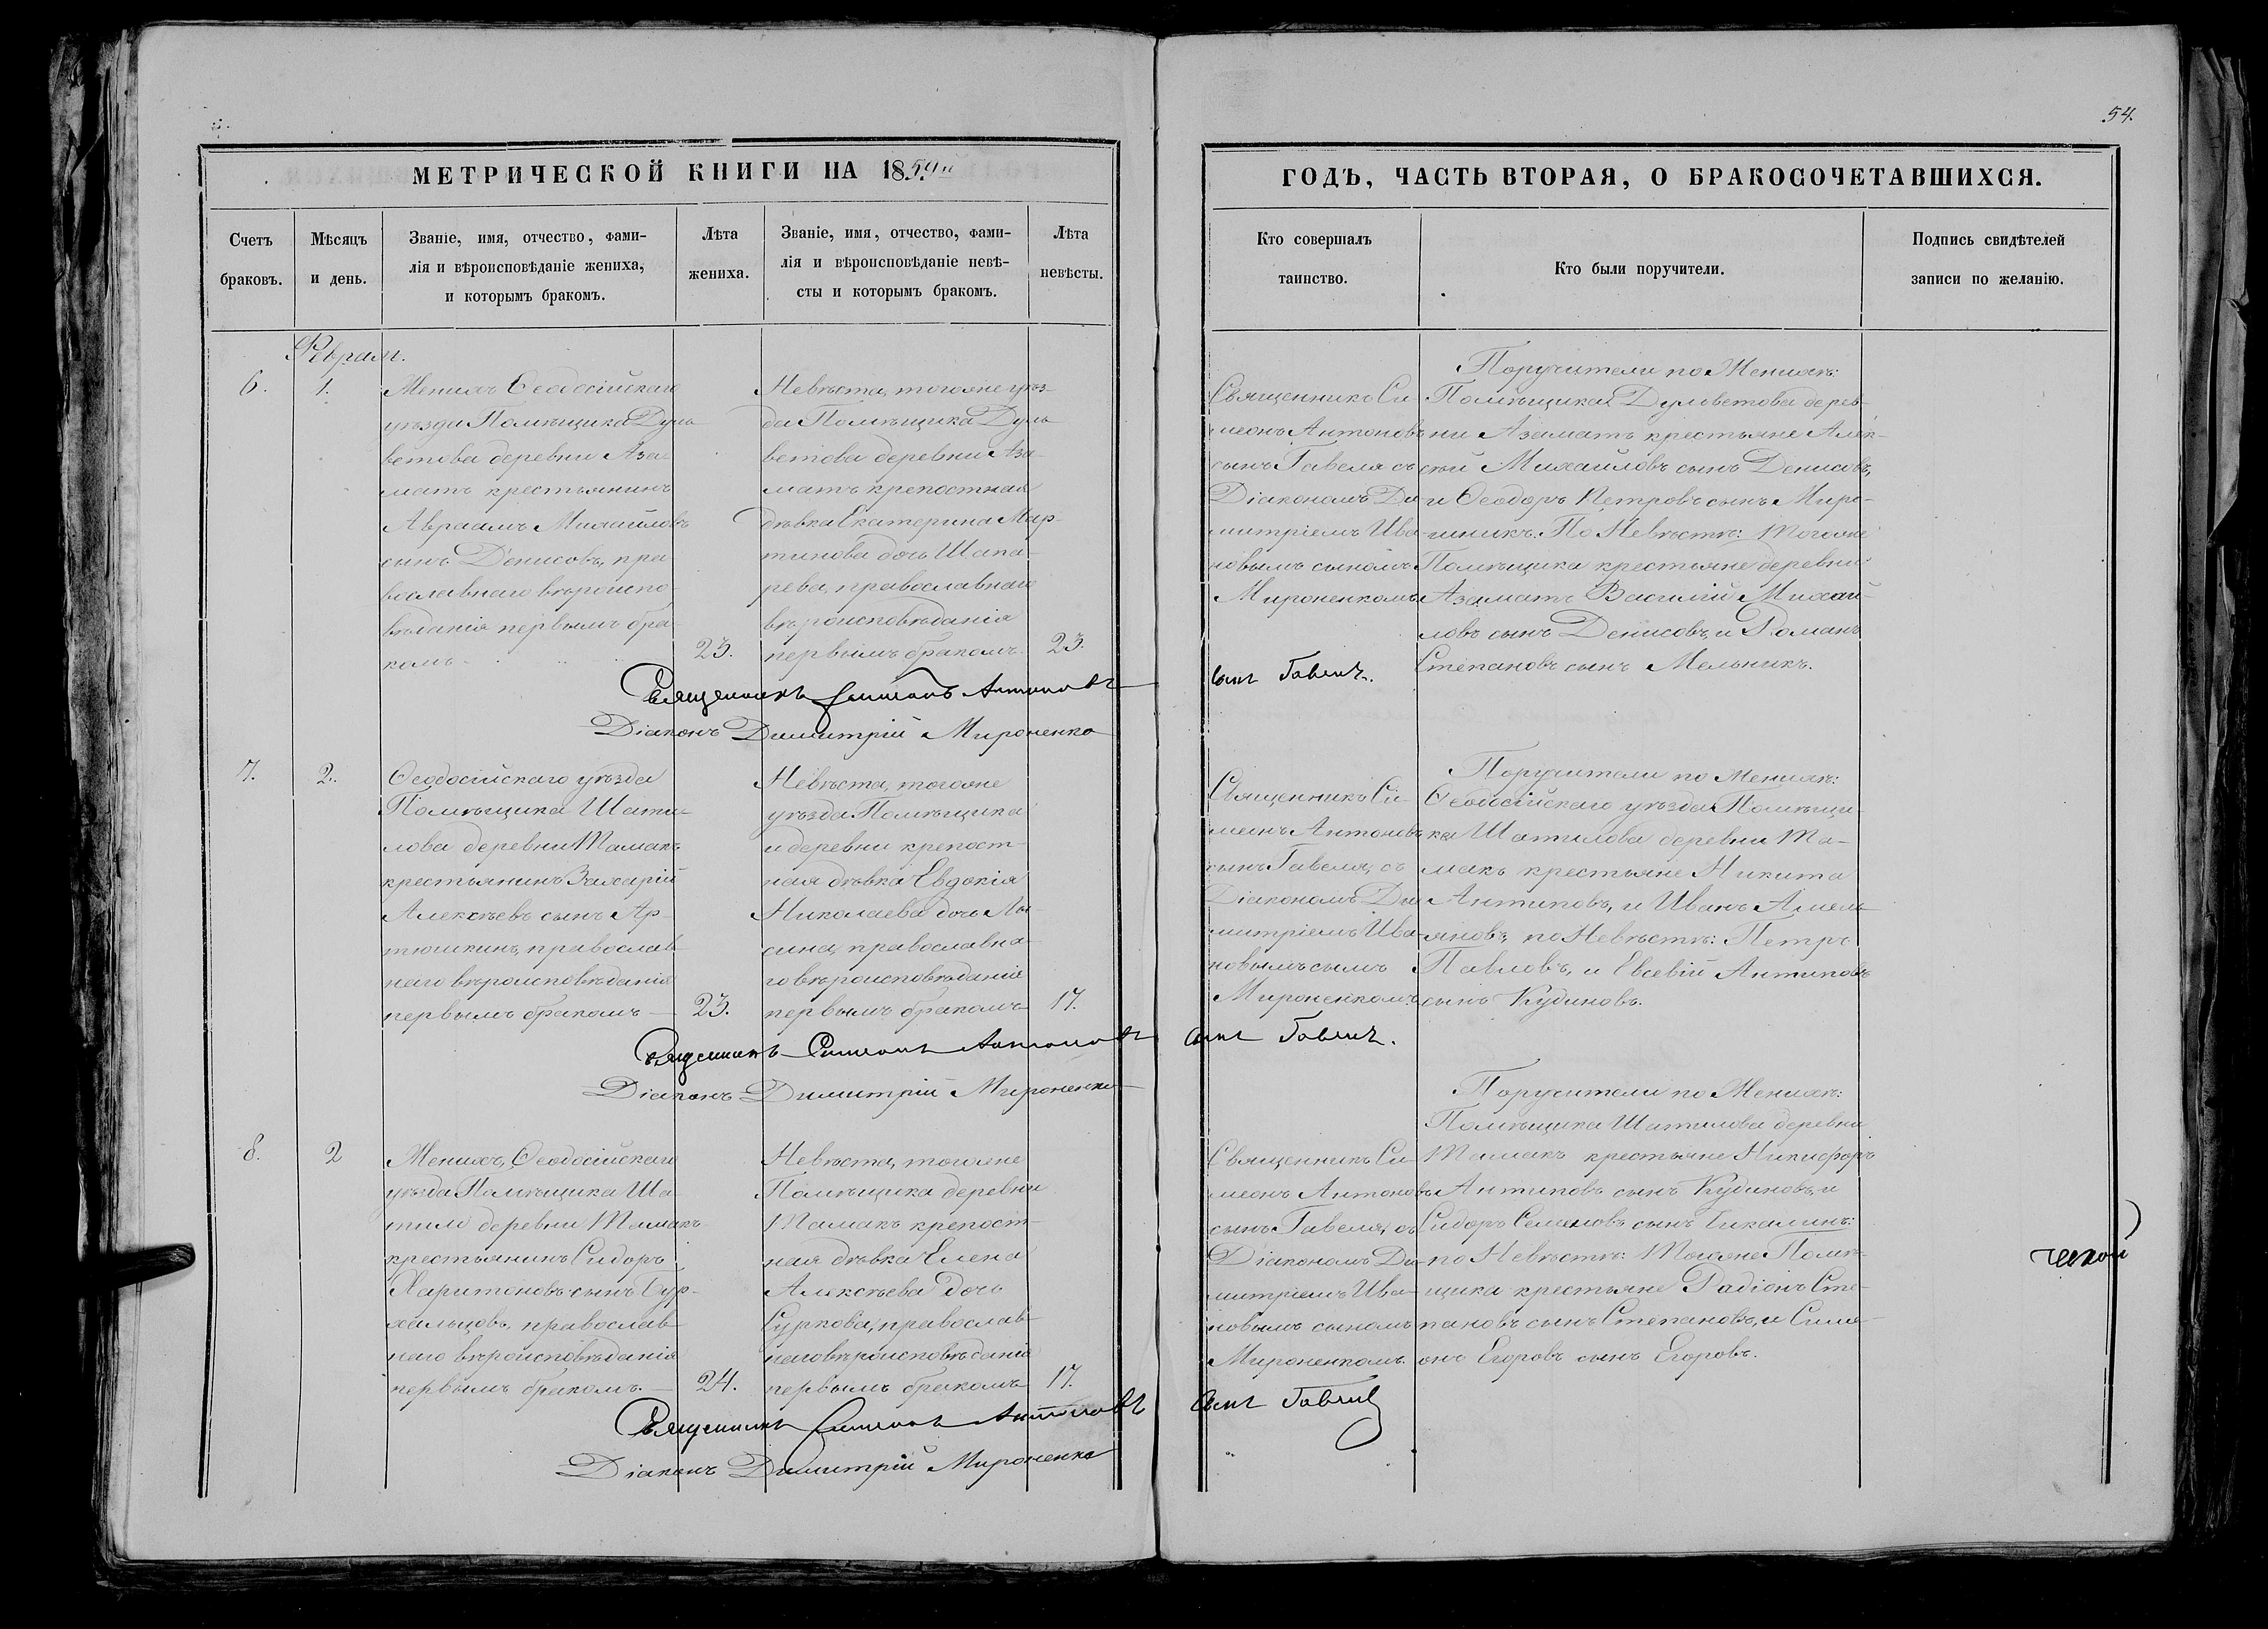 54.
МЕТРИЧЕСКОЙ КНИГИ НА 1859й
ГОДЪ, ЧАСТЬ ВТОРАЯ, О БРАКОСОЧЕТАВШИХСЯ.
Счетъ
браковъ.
Мѣсяцъ
и день.
Званіе, имя, отчество, фами-
лія и вѣроисповѣданіе жениха,
и которымъ бракомъ.
Лѣта
жениха.
Званіе, имя, отчество, фами-
лія и вѣроисповѣданіе невѣ-
сты и которымъ бракомъ.
Лѣта
невѣсты.
Кто совершалъ
таинство.
Кто были поручители.
Подпись свидѣтелей
записи по желанію.
6.
Феврал.
1.
Женихъ Ѳеодосійскаго
уѣзда Помѣщика Дуль
ветова деревни Аза-
матъ крестьянинъ
Авраамъ Михайловъ
сынъ Денисовъ, пра
вославнаго вѣроиспо
вѣданія первымъ бра
комъ
23.
Невѣста, тогоже уѣз-
да Помѣщика Дуль
ветова деревни Аза-
матъ крепостная
дѣвка Екатерина Мар-
тинова дочь Шапа-
рева, православнаго
вѣроисповѣданія
первымъ бракомъ
23.
Священникъ Си-
меонъ Антоновъ
сынъ Гавеля съ
Діакономъ Ди-
митріемъ Ива-
новымъ сыномъ
Мироненкомъ
Поручители по Женихѣ:
Помѣщика Дульветова дерев-
ни Азаматъ крестьяне Алек-
сѣй Михайловъ сынъ Денисовъ,
и Ѳеодоръ Петровъ сынъ Миро-
шникъ. По Невѣстѣ: тогоже
Помѣщика крестьяне деревни
Азаматъ Василій Михай-
ловъ сынъ Денисовъ, и Романъ
Степановъ сынъ Мельникъ.
Священникъ Симеонъ Антоновъ сынъ Гавеля.
Діаконъ Димитрій Мироненко
7.
2.
Ѳеодосійскаго уѣзда
Помѣщика Шати-
лова деревни Тамакъ
крестьянинъ Захарій
Алексѣевъ сынъ Ар-
тюшкинъ, православ
наго вѣроисповѣданія
первымъ бракомъ
23.
Невѣста, тогоже
уѣзда Помѣщика
и деревни крепост-
ная дѣвка Евдокія
Николаева дочь Лы-
сина, православна-
го вѣроисповѣданія
первымъ бракомъ
17.
Священникъ Си-
меонъ Антоновъ
сынъ Гавеля, съ
Діакономъ Ди
митріемъ Ива-
новымъ сымъ
Мироненкомъ
Поручители по Женихѣ:
Ѳеодосійскаго уѣзда Помѣщи-
ка Шатилова деревни Та-
макъ крестьяне Никита
Антиповъ, и Иванъ Амель
яновъ, по Невѣстѣ: Петръ
Павловъ, и Евсевій Антиповъ
сынъ Кудиновъ.
Священникъ Симеонъ Антоновъ сынъ Гавеля.
Діаконъ Димитрій Мироненко
8.
2
Женихъ, Ѳеодосійскаго
уѣзда Помѣщика Ша
тило деревни Тамакъ
крестьянинъ Сидоръ
Харитоновъ сынъ
православ
наго вѣроисповѣданія
первымъ бракомъ.
24.
Невѣста, тогоже
Помѣщика деревни
Тамакъ крепост-
ная дѣвка Елена
Алексѣева дочь
Суркова, православ
наго вѣроисповѣданія
первымъ бракомъ
17.
Священникъ Си-
меонъ Антоновъ
сынъ Гавеля, съ
Діакономъ Ди-
митріемъ Ива-
новымъ сыномъ
Мироненкомъ.
Поручители по Женихѣ:
Помѣщика Шатилова деревни
Тамакъ крестьяне Никифоръ
Антиповъ сынъ Кудиновъ, и
Сидоръ Семеновъ сынъ
по Невѣстѣ: Тогоже Помѣ-
щика крестьяне Радіонъ Сте-
пановъ сынъ Степановъ, и Симе-
онъ Егоровъ сынъ Егоровъ.
Священникъ Симеонъ Антоновъ сынъ Гавеля
Діаконъ Димитрій Мироненко
ческой